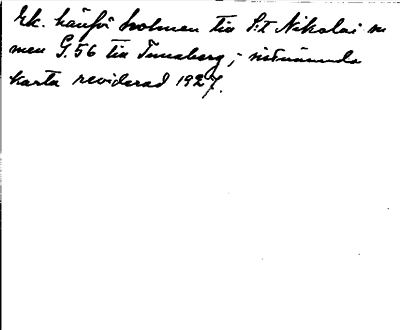 Ek. hänför holmen till S:t Nikolai m
men G.56 till Tunaberg; - sistnämnda
karta reviderad 1927.